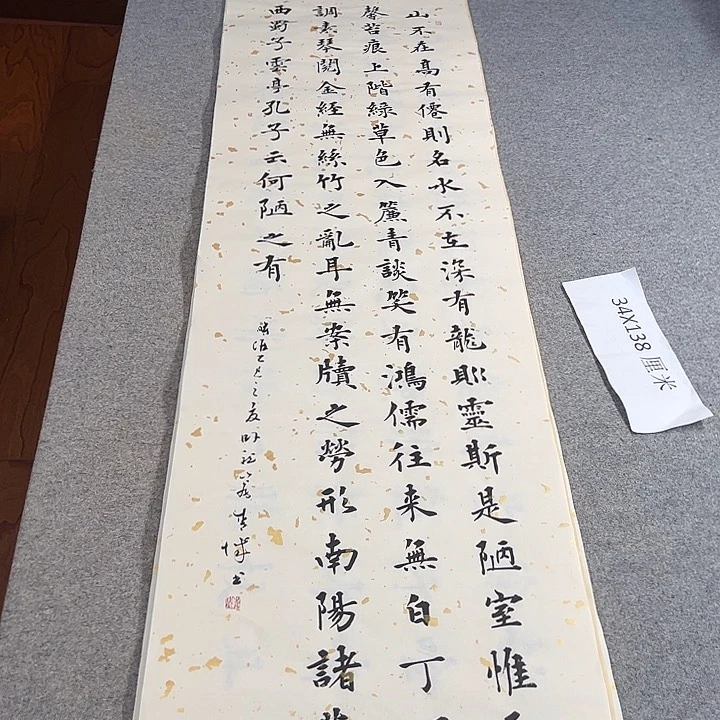 山不在高有僊則名水不在深有龍則靈斯是陋室惟
馨苔痕上階綠草色入簾青談笑有鴻儒往來無白丁
調素琴閱金經無絲竹之亂耳無案牘之勞形南陽諸
西蜀子雲亭孔子云何陋之有
歲次乙巳之夏
34X138 厘米